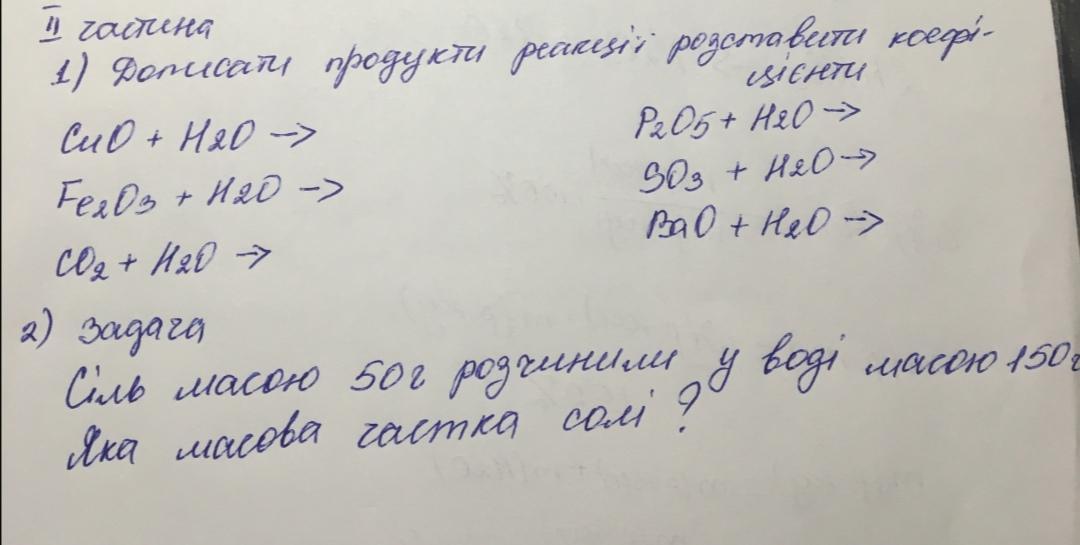 II частина
1) Дописати продукти реакцій і розставити коефі-
цієнти
CuO + H2O →
P2O5 + H2O →
Fe2O3 + H2O →
SO3 + H2O →
CO2 + H2O →
BaO + H2O →
2) Задача
Сіль масою 50г розчинили у воді масою 150г
Яка масова частка солі ?